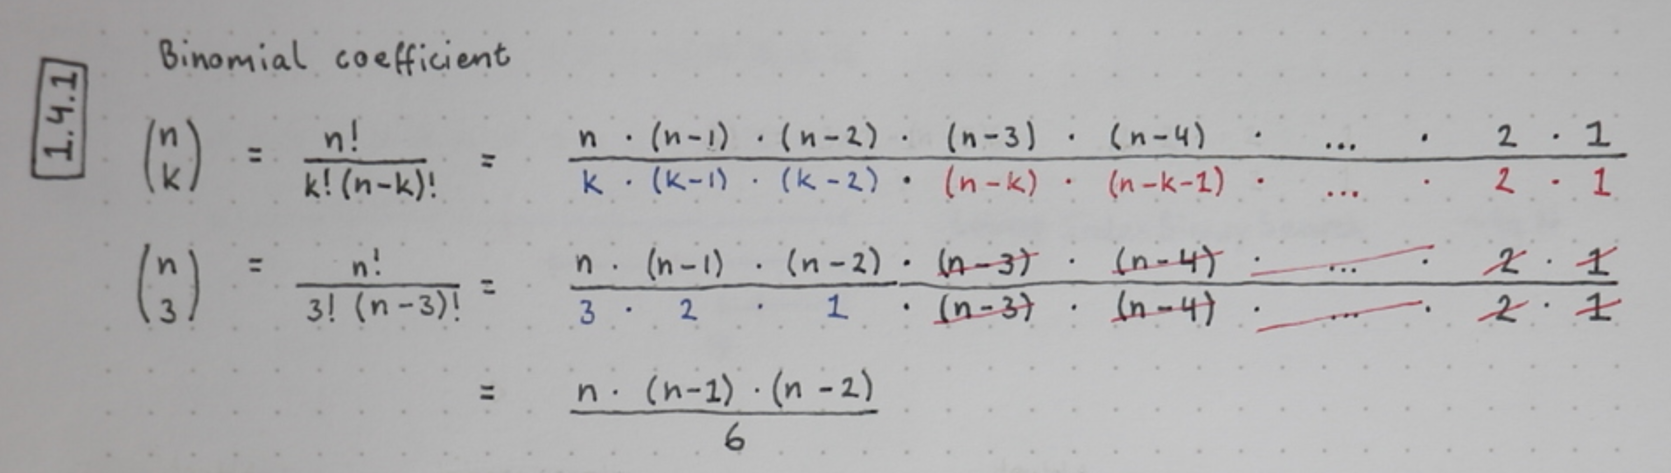 Binomial coefficient
1.4.1
(n k) = n! / k!(n-k)! = n · (n-1) · (n-2) · (n-3) · (n-4) · ... · 2 · 1 / k · (k-1) · (k-2) · (n-k) · (n-k-1) · ... · 2 · 1
(n 3) = n! / 3! (n-3)! = n · (n-1) · (n-2) · (n-3) · (n-4) · ... · 2 · 1 / 3 · 2 · 1 · (n-3) · (n-4) · ... · 2 · 1
= n · (n-1) · (n-2) / 6